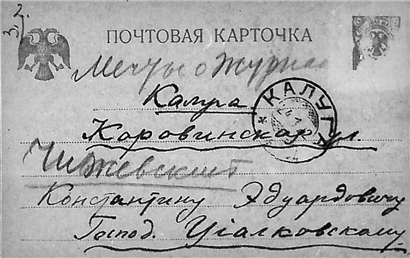 2.
3)
ПОЧТОВАЯ КАРТОЧКА
Мечты о журнал
КАЛУГ
Калуга
Коровинская ул.
Чижевский
Константину Эдуардовичу
Господ. Ціалковскому